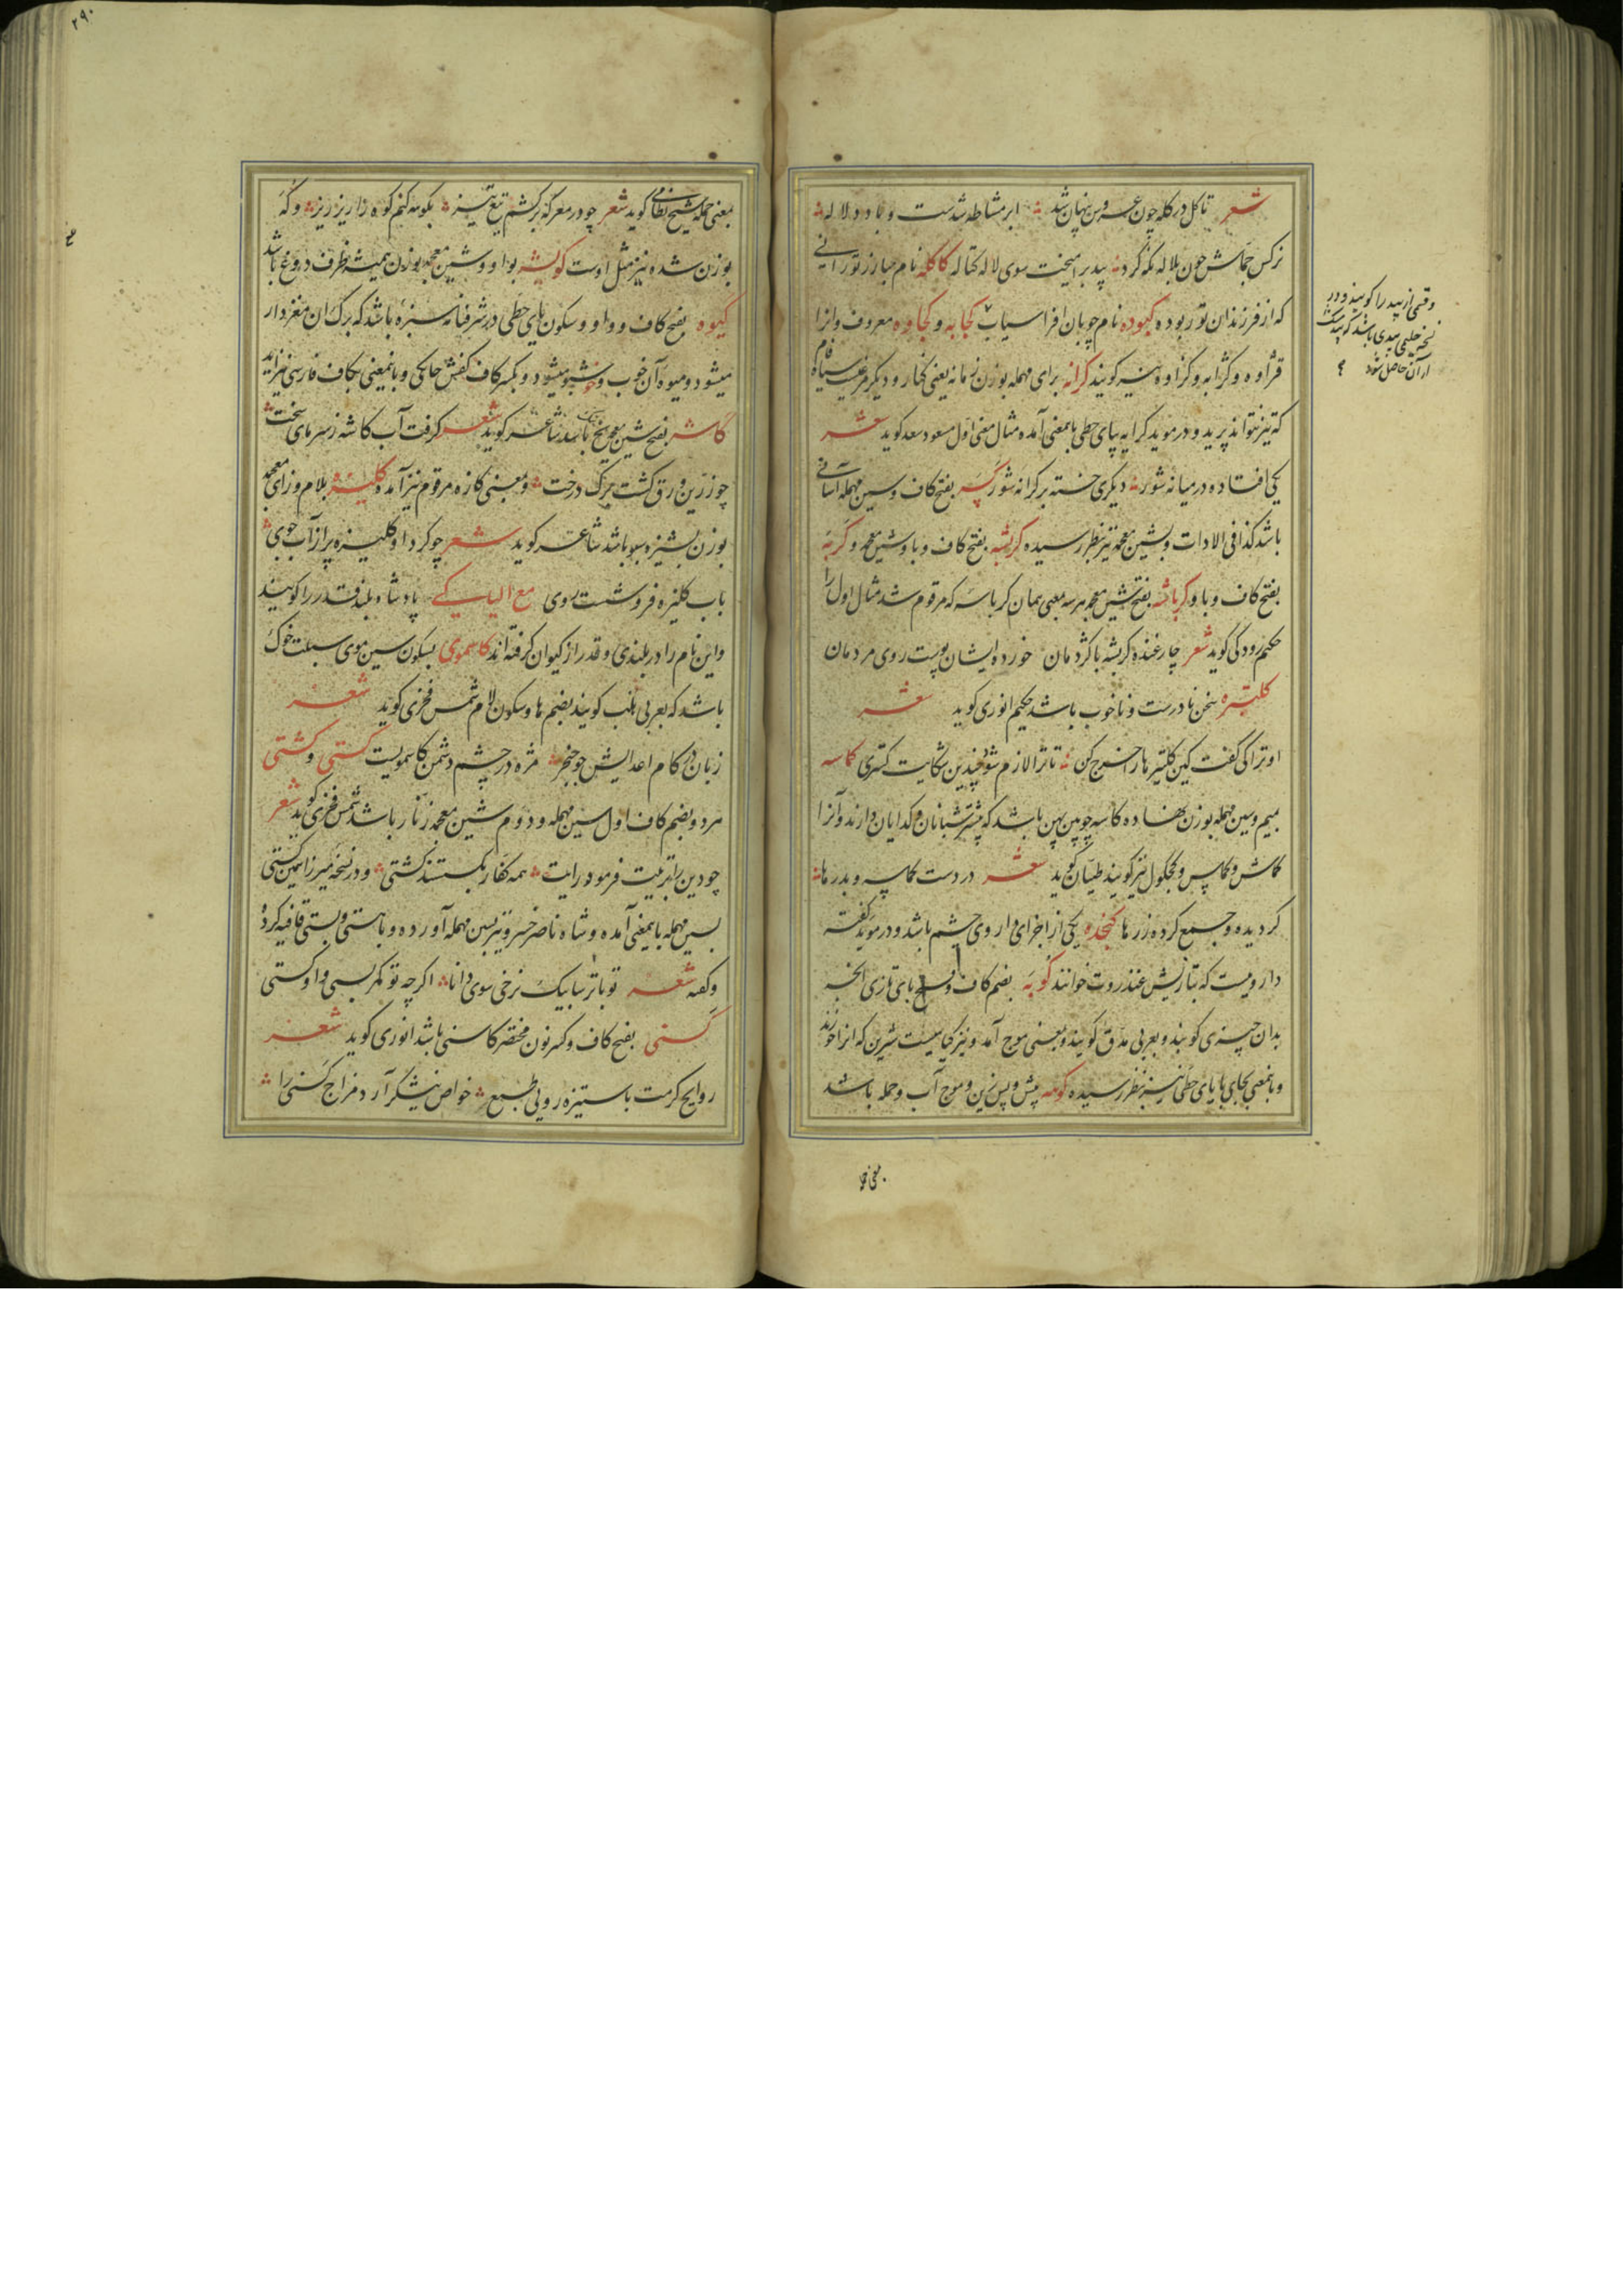 شعر تا کل در کله چون عروس نهان شد ابر مشاطه شدست و باد دلاله
نرکس جماش چون بلاله نکه کرد بید برآمیخت سوی لاله کتاله کاکله نام مبارز تورانی
که از فرزندان تور بوده کبوده نام چوبان افراسیاب کجابه و کجاوه معروف وانرا
قژاوه وکژابه وکژاوه نیز کویند کرانه برای مهمله بوزن زمانه یعنی کنار و دیکر مرغیست سیاه فام
که تیز نتواند پرید و در موید کرایه بیای حطی باین معنی آمده مثال معنی اول مسعود سعد کوید شعر
یکی افتاده در میانه شور دیکری خسته بر کرانه شور کسه بفتح کاف و سین مهمله آسانی
باشد کذا فی الادات و بشین معجمه نیز بنظر رسیده کربشه بفتح کاف و با و شین معجمه و کربه
بفتح کاف و با و کرباشه بفتح شین معجمه هر سه بمعنی همان کرباسه که مرقوم شد مثال اول را
حکیم رودکی کوید شعر چار غنده کربشه با کژدمان خورده ایشان پوست روی مردمان
کلپتره سخن نادرست و ناخوب باشد حکیم انوری کوید شعر
او ترا کی کفت کین کلپترها را خرج کن تا ترا لازم شود چندین شکایت کستری کماسه
بمیم وسین مهمله بوزن نهاده کاسه چوبین پهن باشد که بیشتر شبانان و کدایان دارند وآنرا
کماش و کماس و کجکول نیز کویند طیان کوید شعر در دست کماسه و بدرها
کردیده و جمع کرده زرها کنجده یکی از اجزای داروی چشم باشد و در موید کفته
دارویست که بتازیش عنذروت خوانند کوبه بضم کاف و فتح بای تازی آنچه
بدان چیزی کوبند و بعربی مدق کویند و بمعنی موج آمده و نیز کیاهیست شیرین که انرا خورند
و باین معنی بجای با یای حطی نیز بنظر رسیده کوهه پیش و پس زین و موج آب و حمله باشد
بمعنی حمله
وقسمی از بید را کویند و در
نسخه حلیمی بیدی باشد که بیدمشک
از آن حاصل شود
۲۹۰
بمعنی حمله شیخ نظامی کوید شعر چو در معرکه برکشم تیغ تیز بکوهه کنم کوه را ریز ریز و که
بوزن شده نیز مثل اوست کویشه بواو و شین معجمه بوزن همیشه ظرف دوغ باشد
کیوه بفتح کاف و واو و سکون یای حطی در شرفنامه سبزه باشد که برک ان مغزدار
میشود و میوه آن خوب و خوشبو میشود و بکسر کاف کفش چابکی و باین معنی بکاف فارسی نیز آید
کاشه بفتح شین معجمه یخ باشد شاعر کوید شعر کرفت آب کاشه ز سرمای سخت
چو زرین ورق کشت برک درخت و بمعنی کازه مرقوم نیز آمده کلیزه بلام و زای معجمه
بوزن بشیزه سبو باشد شاعر کوید شعر چو کرد او کلیزه پر از آب جوی
بآب کلیزه فرو شست روی مع الیاء کی پادشاه بلند قدر را کویند
واین نام را در بلندی و قدر از کیوان کرفته اند کاسموی بسکون سین موی سبلت خوک
باشد که بعربی هلب کویند بضم ها و سکون لام شمس فخری کوید شعر
زبان در کام اعدایش چو خنجر مژه در چشم دشمن کاسمویست کستی و کشتی
هر دو بضم کاف اول سین مهمله و دوم شین معجمه زنار باشد شمس فخری کوید شعر
چو دین را تربیت فرمود رایت همه کفار بکسستند کشتی و در نسخه میرزا بمین کستی
بسین مهمله باین معنی آمده و شاه ناصر خسرو نیز بسین مهمله آورده و با هستی و بستی قافیه کرده
وکفته شعر تو با ترسا بیک نرخی سوی دانا اکرچه تو کمر بستی و او کستی
کسنی بفتح کاف و کسر نون مختصر کاسنی باشد انوری کوید شعر
روایح کرمت با ستیزه رویی طبع خواص نیشکر آرد مزاج کسنی را